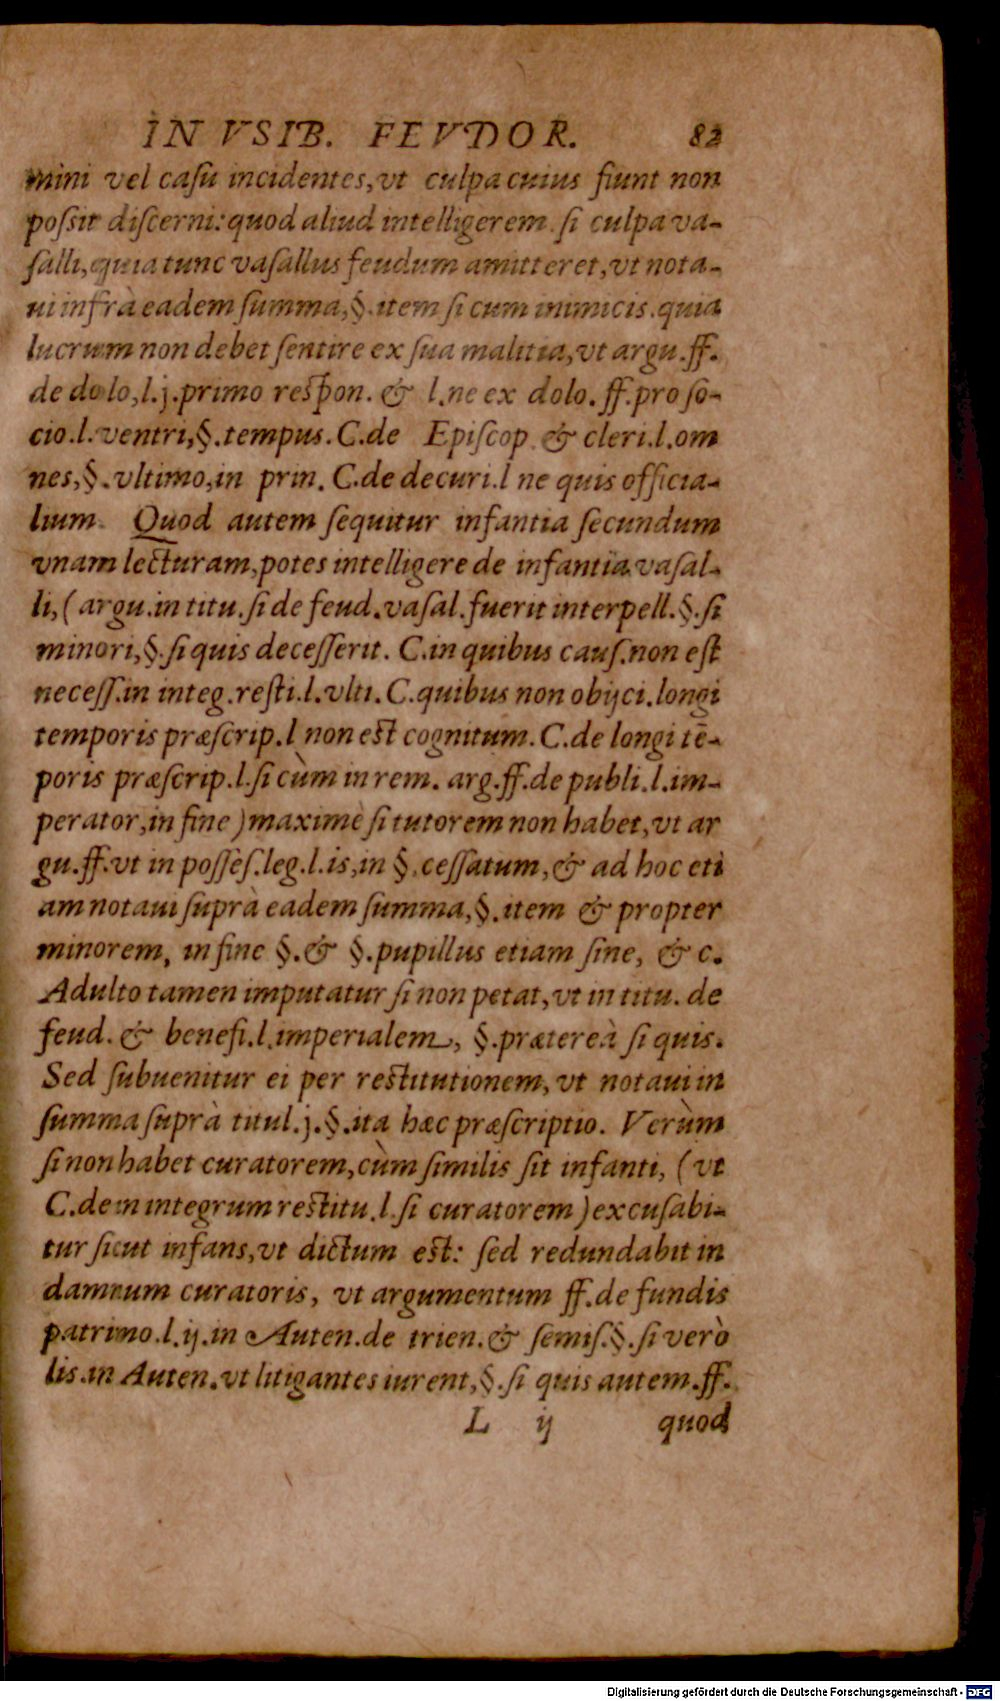 IN VSIB. FEVDOR. 82
mini vel caſu incidentes, vt culpa cuius fiunt non
poſsit diſcerni: quod aliud intelligerem ſi culpa va-
ſalli, quia tunc vaſallus feudum amitteret, vt nota-
ui infrà eadem ſumma, §. item ſi cum inimicis. quia
lucrum non debet ſentire ex ſua malitia, vt argu. ff.
de dolo, l. j. primo reſpon. & l. ne ex dolo. ff. pro ſo-
cio. l. ventri, §. tempus. C. de Epiſcop. & cleri. l. om
nes, §. vltimo, in prin. C. de decuri. l ne quis officia-
lium. Quod autem ſequitur infantia ſecundum
vnam lecturam, potes intelligere de infantia vaſal-
li, (argu. in titu. ſi de feud. vaſal. fuerit interpell. §. ſi
minori, §. ſi quis deceſſerit. C. in quibus cauſ. non eſt
neceſſ. in integ. reſti. l. vlti. C. quibus non obijci. longi
temporis præſcrip. l non eſt cognitum. C. de longi tē-
poris præſcrip. l. ſi cùm in rem. arg. ff. de publi. l. im-
perator, in fine) maximè ſi tutorem non habet, vt ar
gu. ff. vt in poſſeſ. leg. l. is, in §. ceſſatum, & ad hoc eti
am notaui ſuprà eadem ſumma, §. item & propter
minorem, in fine §. & §. pupillus etiam ſine, & c.
Adulto tamen imputatur ſi non petat, vt in titu. de
feud. & benefi. l. imperialem, §. prætereà ſi quis.
Sed ſubuenitur ei per reſtitutionem, vt notaui in
ſumma ſuprà titul. j. §. ita hæc præſcriptio. Verùm
ſi non habet curatorem, cùm ſimilis ſit infanti, (vt
C. de in integrum reſtitu. l. ſi curatorem) excuſabi-
tur ſicut infans, vt dictum eſt: ſed redundabit in
damnum curatoris, vt argumentum ff. de fundis
patrimo. l. ij. in Auten. de trien. & ſemiſ. §. ſi verò
lis. in Auten. vt litigantes iurent, §. ſi quis autem. ff.
L ij quod
Digitalisierung gefördert durch die Deutsche Forschungsgemeinschaft - DFG